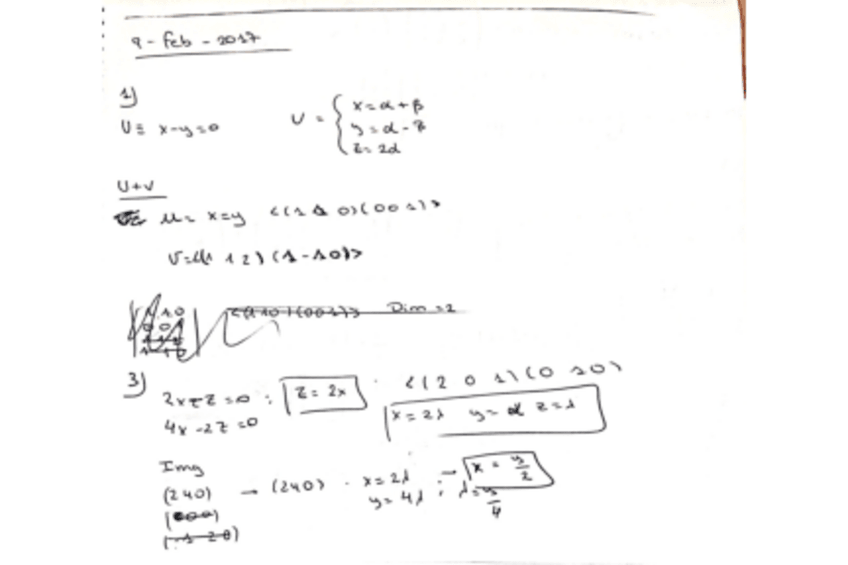 9 - Feb - 2017
1)
U ≡ x-y=0
U = { x = α + β
y = α - β
z = 2α
U+V
U = x=y <(1 1 0)(0 0 1)>
V=<(1 1 2)(1 -1 0)>
<(1 1 0)(0 0 1)> Dim = 2
3)
2x-z=0 ; z = 2x · <(2 0 1)(0 1 0)
4x -2z =0 x = 2λ y = α z = λ
Img
(240) → (240) · x = 2λ → x = y/2
y = 4λ ; λ = y/4
(000)
(-1 -2 0)